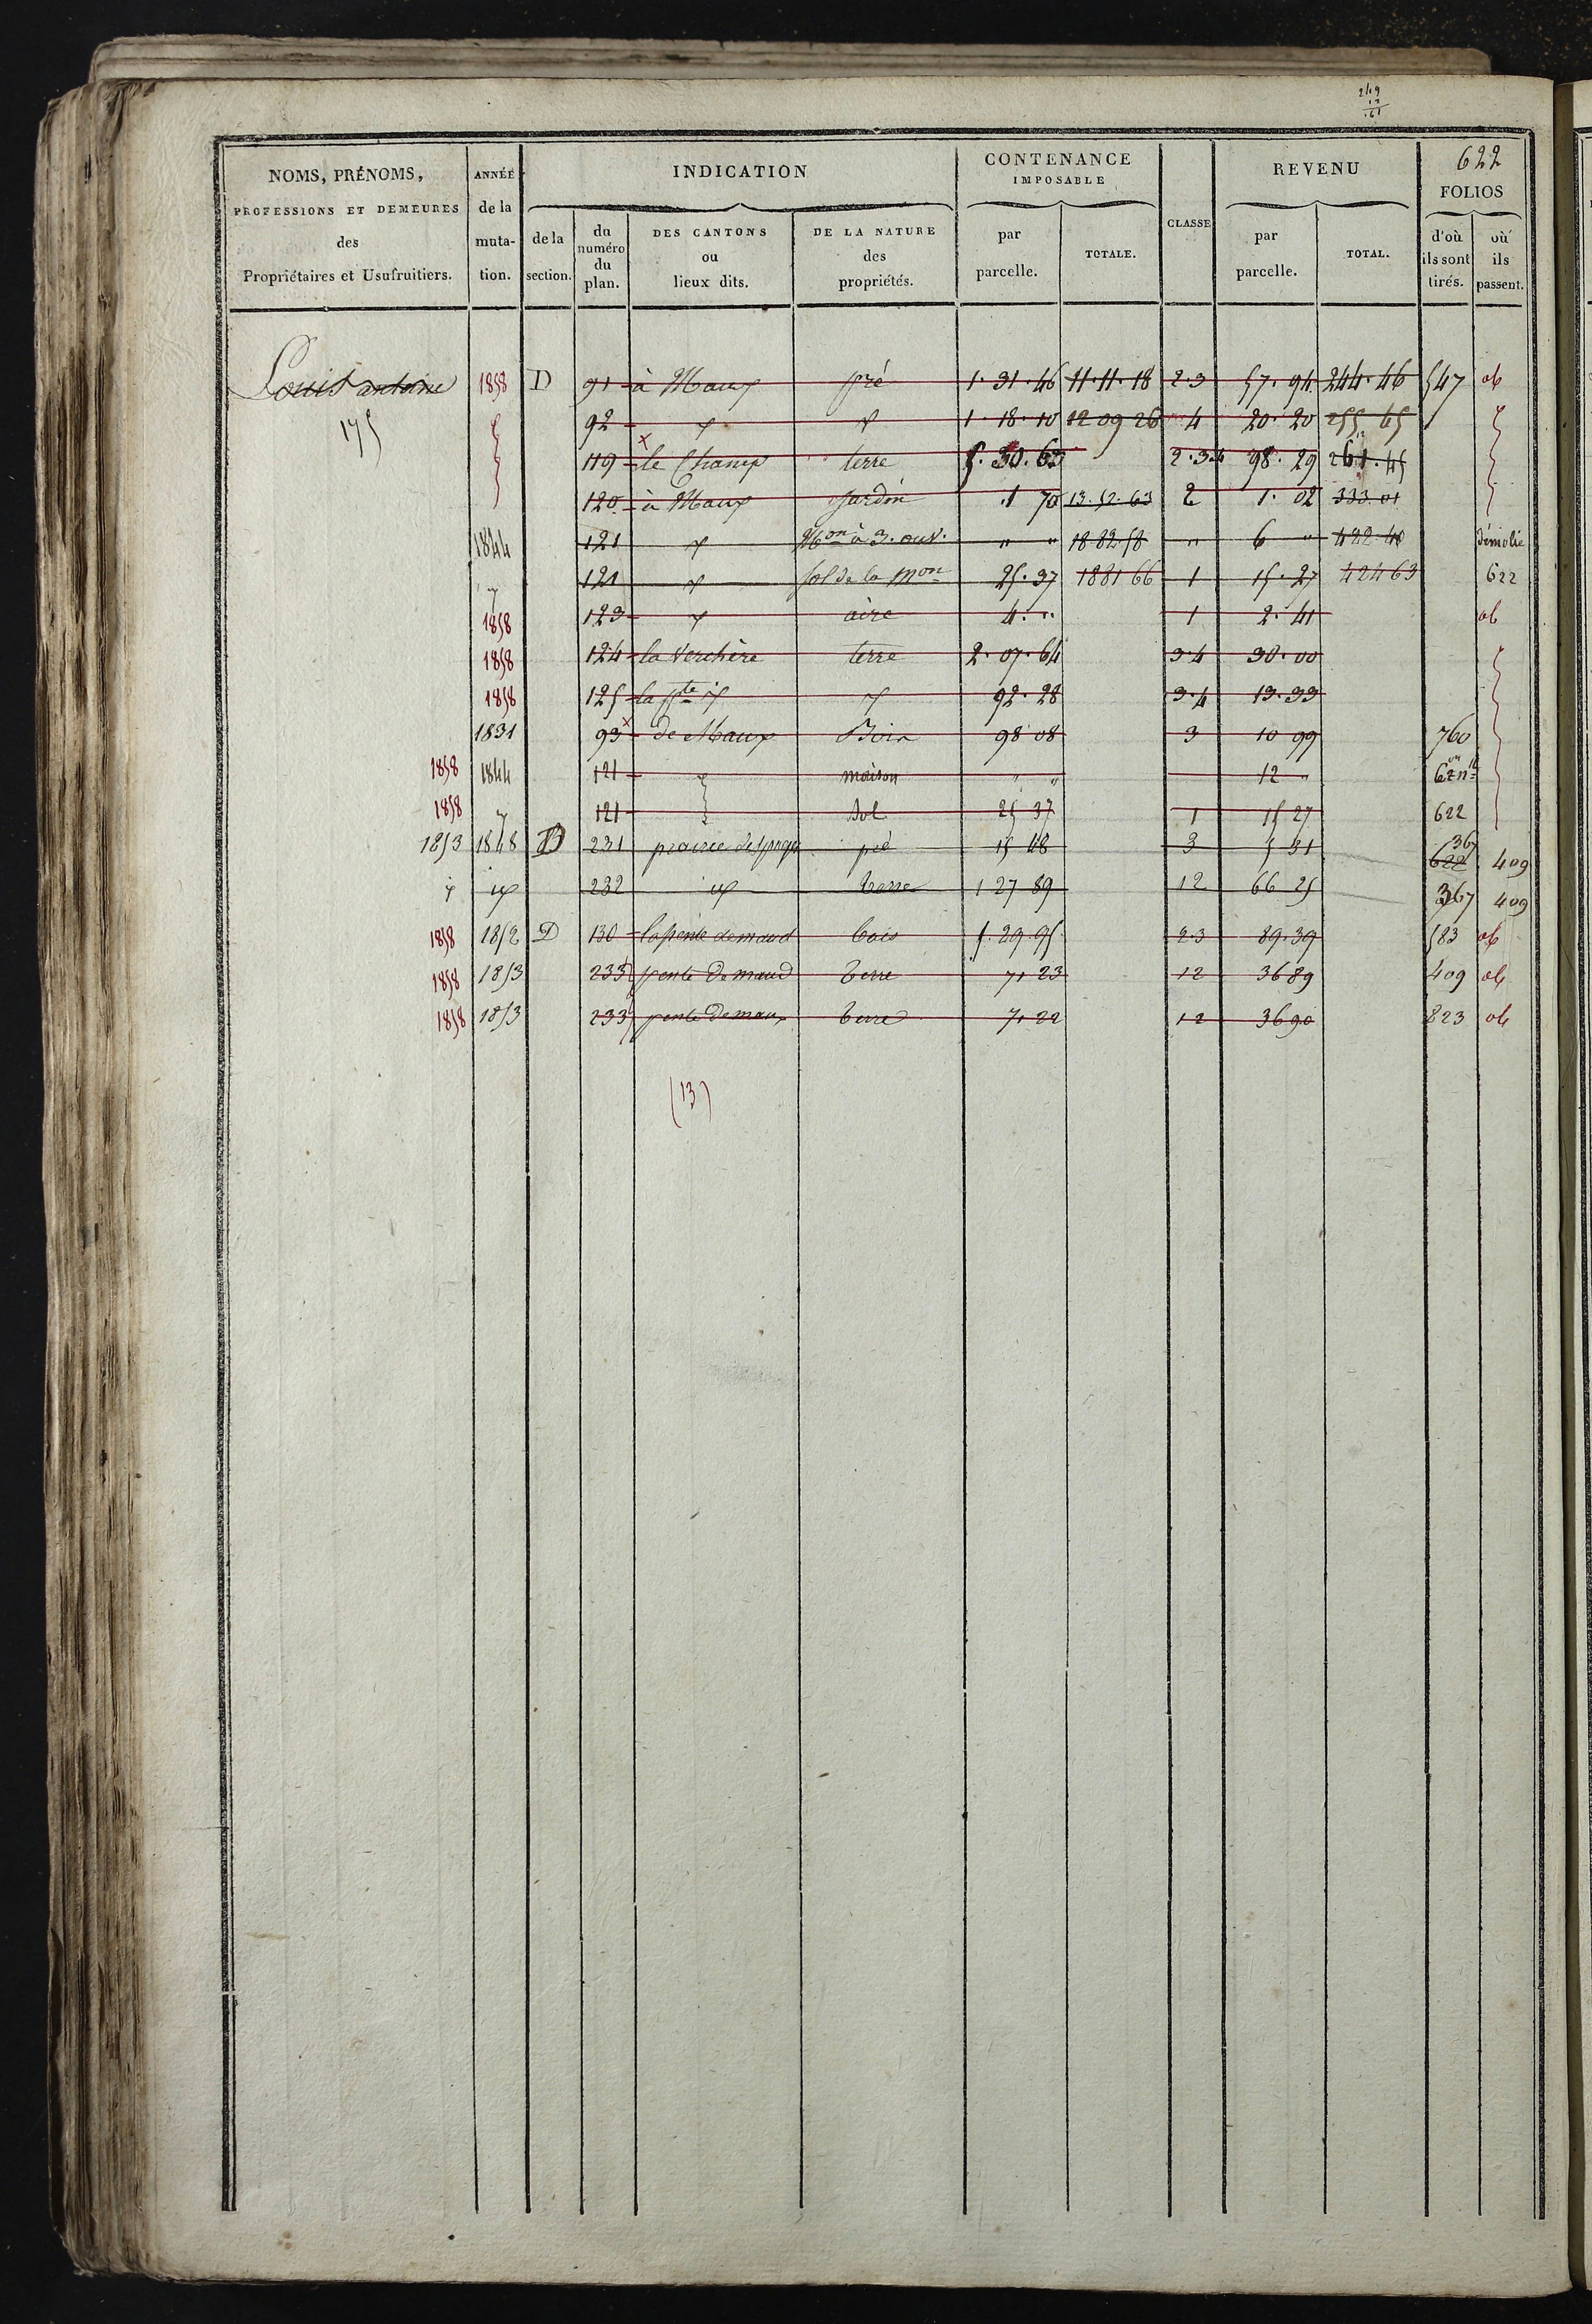 249
12
261
622
NOMS, PRÉNOMS, PROFESSIONS ET DEMEURES des Propriétaires et Usufruitiers.
ANNÉE de la muta- tion.
INDICATION
de la section.
du numéro du plan.
DES CANTONS ou lieux dits.
DE LA NATURE des propriétés.
CONTENANCE IMPOSABLE
par parcelle.
TOTALE.
CLASSE
REVENU
par parcelle.
TOTAL.
FOLIOS
d'où ils sont tirés.
où ils passent.
Louis antoine 1858 D 91 à Maux pré 1.31.46 11.11.18 2.3 57.94 244.46 547 ob
175 92 1.18.10 12 09 26 4 20.20 255.65
119 le Champ terre 5.30.63 2.3.4 98.29 261.45
120 à Maux Jardin .1 70 13.52.63 2 1.02 333 01
1844 121 Mon à 3. ouv. " " 18.82.58 " 6 " 422.40 démolie
121 sol de la Mon 25.37 18 81 66 1 15.27 424 63 622
1858 123 aire 4. " 1 2.41 ob
1858 124 la Verchère terre 2.07.64 3.4 30.00
1858 125 la pte 92.28 3.4 13.33
1831 93 de Maux Bois 98 08 3 10 99 760
1858 1844 121 maison " " 12 "
1858 121 Sol 25 37 1 15 27 622
1853 1848 B 231 pré 15 48 3 5 31 367 622 409
232 terre 1 27 89 12 66 25 367 409
1858 1852 D 130 la pente de maud bois 5.29.95 2 3 89.39 583 ob
1858 1853 233 pente de maud terre 71 23 12 36 89 409 ob
1858 1853 233 pente de maux terre 71 22 12 36 90 823 ob
(13)